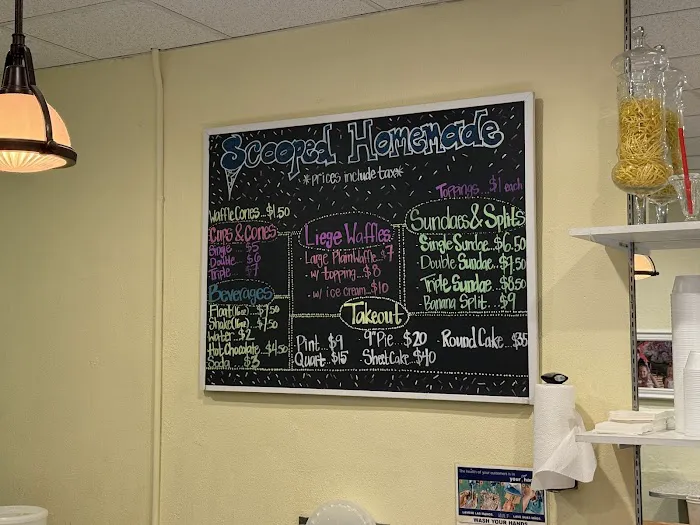 Scooped Homemade
*prices include tax*
Toppings...$1 each
Waffle Cones...$1.50
Cups & Cones
Single $5
Double...$6
Triple...$7
Beverages
Float (16oz) $7.50
Shake (16oz) $7.50
Water...$2
Hot Chocolate...$4.50
Soda...$3
Liege Waffles
Large Plain Waffle...$7
- w/ topping...$8
- w/ ice cream...$10
Sundaes & Splits
Single Sundae...$6.50
Double Sundae...$7.50
Triple Sundae...$8.50
Banana Split...$9
Takeout
Pint...$9
9" Pie...$20
Round Cake...$35
Quart...$15
Sheet Cake...$40
The health of your customers is in
your
WASH YOUR HANDS